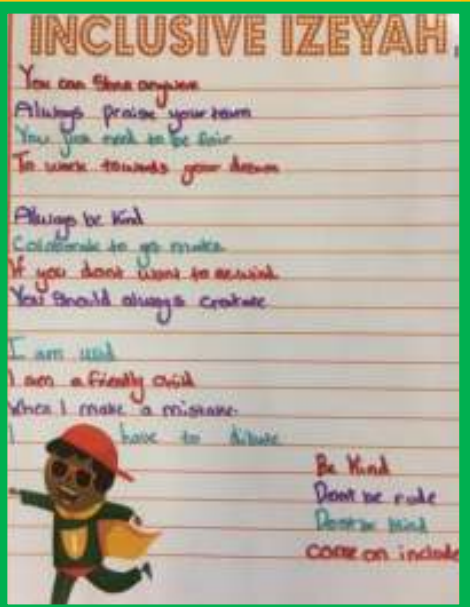 INCLUSIVE IZEYAH
You can
Always praise your team
You just need to be fair
To work towards your dream
Always be kind
to go
If you dont want to rewind
You Should always create
I am
I am a friendly child
When I make a mistake
I have to
Be Kind
Dont be rude
Dont be
come on include